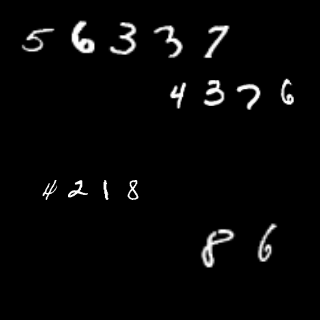 56337
4376
4218
86